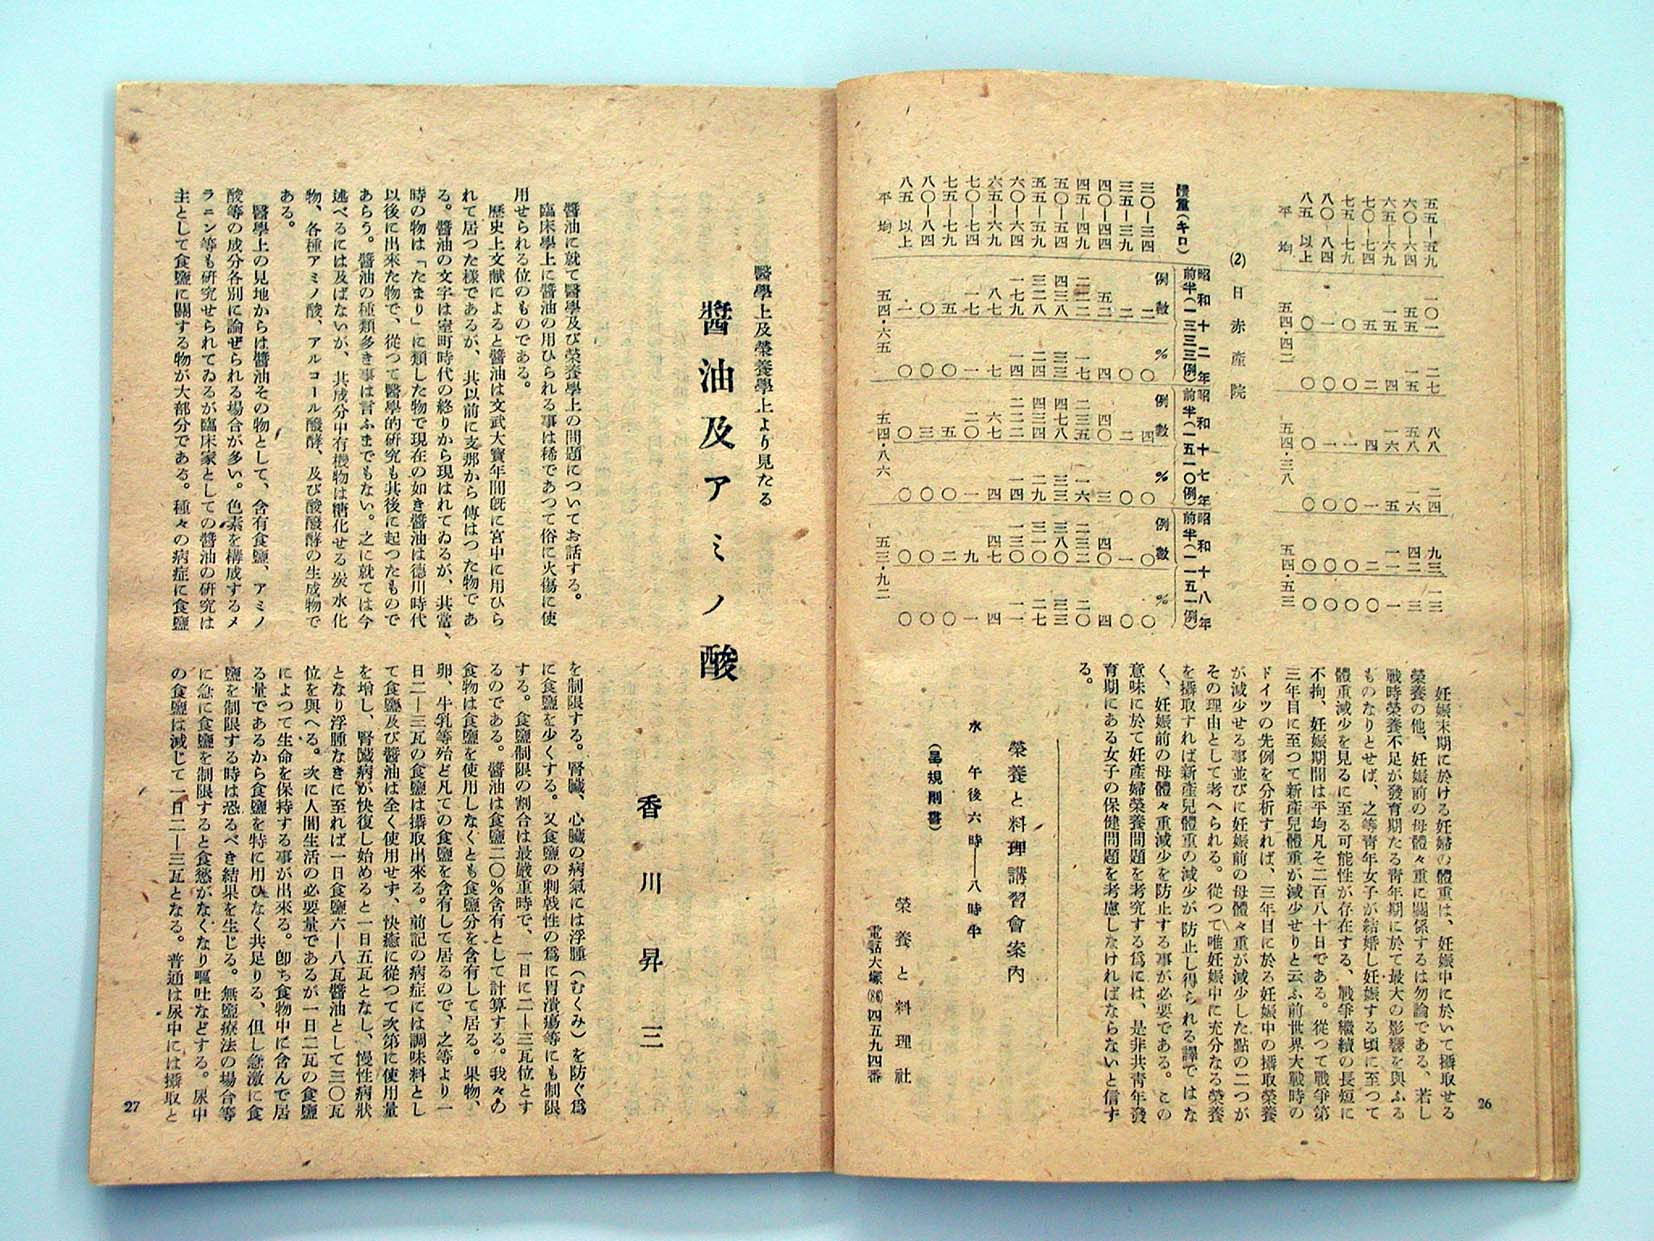 五五—五九 一〇一 二七 八八 二四 九三 一三
六〇—六四 五五 一五 五八 一六 四二 三
六五—六九 一五 四 一六 五 一一 一
七〇—七四 五 二 四 一 二 〇
七五—七九 〇 〇 一 〇 〇 〇
八〇—八四 一 〇 一 〇 〇 〇
八五以上 〇 〇 〇 〇 〇 〇
平均 五四・四二 五四・三八 五四・五三
(2) 日赤產院
昭和十二年 昭和十七年 昭和十八年
前半(一三三三例) 前半(一五一〇例) 前半(一一五一例)
體重(キロ) 例數 % 例數 % 例數 %
三〇—三四 二 〇 四 〇 〇 〇
三五—三九 二 〇 二 〇 一 〇
四〇—四四 五二 四 四〇 三 四〇 四
四五—四九 二二二 一七 二三五 一六 二三二 二〇
五〇—五四 四三八 三三 四七八 三三 三八〇 三三
五五—五九 三二八 二四 四三四 二九 三一〇 二七
六〇—六四 一七九 一四 二二二 一四 一三〇 一一
六五—六九 八七 七 六七 四 四七 四
七〇—七四 一七 一 二〇 一 九 一
七五—七九 五 〇 五 〇 二 〇
八〇—八四 〇 〇 三 〇 〇 〇
八五以上 一 〇 〇 〇 〇 〇
平均 五四・六五 五四・八六 五三・九二
妊娠末期に於ける妊婦の體重は、妊娠中に於いて攝取せる
榮養の他、妊娠前の母體々重に關係するは勿論である、若し
戰時榮養不足が發育期たる靑年期に於て最大の影響を與ふる
ものなりとせば、之等靑年女子が結婚し妊娠する頃に至つて
體重減少を見るに至る可能性が存在する、戰爭繼續の長短に
不拘、妊娠期間は平均凡そ二百八十日である。從つて戰爭第
三年目に至つて新產兒體重が減少せりと云ふ前世界大戰時の
ドイツの先例を分析すれば、三年目に於る妊娠中の攝取榮養
が減少せる事並びに妊娠前の母體々重が減少した點の二つが
その理由として考へられる。從つて唯妊娠中に充分なる榮養
を攝取すれば新產兒體重の減少が防止し得られる譯ではな
く、妊娠前の母體々重減少を防止する事が必要である。この
意味に於て妊產婦榮養問題を考究する爲には、是非共靑年發
育期にある女子の保健問題を考慮しなければならないと信ず
る。
榮養と料理講習會案內
水 午後六時—八時半
(呈規則書)
榮養と料理社
電話大塚(86)四五九四番
26
醫學上及榮養學上より見たる
醬油及アミノ酸
香川昇三
醬油に就て醫學及び榮養學上の問題についてお話する。
臨床學上に醬油の用ひられる事は稀であつて俗に火傷に使
用せられる位のものである。
歷史上文献によると醬油は文武大寶年間旣に宮中に用ひら
れて居つた樣であるが、共以前に支那から傳はつた物であ
る。醬油の文字は室町時代の終りから現はれてゐるが、共當
時の物は「たまり」に類した物で現在の如き醬油は德川時代
以後に出來た物で、從つて醫學的硏究も共後に起つたもので
あらう。醬油の種類多き事は言ふまでもない。之に就ては今
述べるには及ばないが、共成分中有機物は糖化せる炭水化
物、各種アミノ酸、アルコール醱酵、及び酸醱酵の生成物で
ある。
醫學上の見地からは醬油その物として、含有食鹽、アミノ
酸等の成分各別に論ぜられる場合が多い。色素を構成するメ
ラニン等も硏究せられてゐるが臨床家としての醬油の硏究は
主として食鹽に關する物が大部分である。種々の病症に食鹽
を制限する。腎臟、心臟の病氣には浮腫(むくみ)を防ぐ爲
に食鹽を少くする。又食鹽の刺戟性の爲に胃潰瘍等にも制限
する。食鹽制限の割合は最嚴重時で、一日に二—三瓦位とす
るのである。醬油は食鹽二〇%含有として計算する。我々の
食物は食鹽を使用しなくとも食鹽分を含有して居る。果物、
卵、牛乳等殆ど凡ての食物は食鹽を含有して居るので、之等より一
日二—三瓦の食鹽は攝取出來る。前記の病症には調味料とし
て食鹽及び醬油は全く使用せず、快癒に從つて次第に使用量
を增し、腎臟病が快復し始めると一日五瓦となし、慢性病狀
となり浮腫なきに至れば一日食鹽六—八瓦醬油として三〇瓦
位を與へる。次に人間生活の必要量であるが一日二瓦の食鹽
によつて生命を保持する事が出來る。卽ち食物中に含んで居
る量であるから食鹽を特に用ひなく共足りる、但し急激に食
鹽を制限する時は恐るべき結果を生じる。無鹽療法の場合等
に急に食鹽を制限すると食慾がなくなり嘔吐などする。尿中
の食鹽は減じて一日二—三瓦となる。普通は尿中には攝取と
27